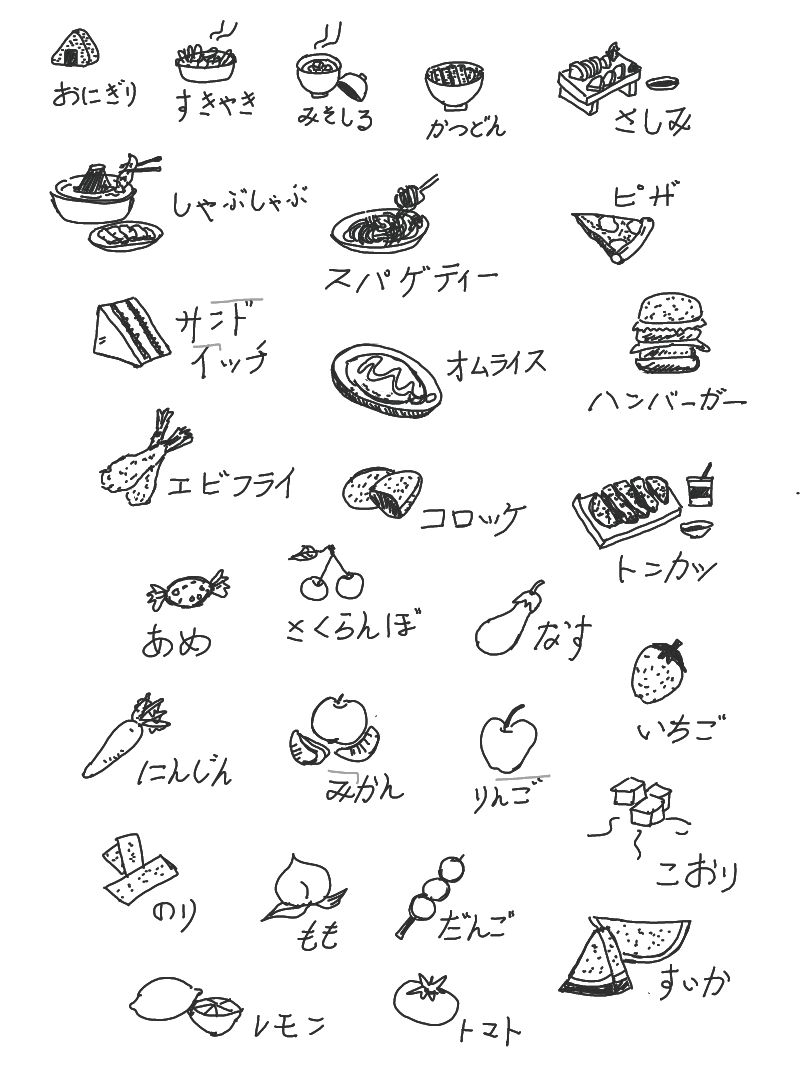 おにぎり
すきやき
みそしる
かつどん
さしみ
しゃぶしゃぶ
スパゲティー
ピザ
サンド
イッチ
オムライス
ハンバーガー
エビフライ
コロッケ
トンカツ
あめ
さくらんぼ
なす
いちご
にんじん
みかん
りんご
こおり
のり
もも
だんご
すいか
レモン
トマト